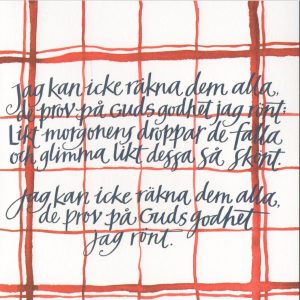 Jag kan icke räkna dem alla,
de prov på Guds godhet jag rönt:
Likt morgonens droppar de falla
och glimma likt dessa så skönt.
Jag kan icke räkna dem alla,
de prov på Guds godhet
jag rönt.